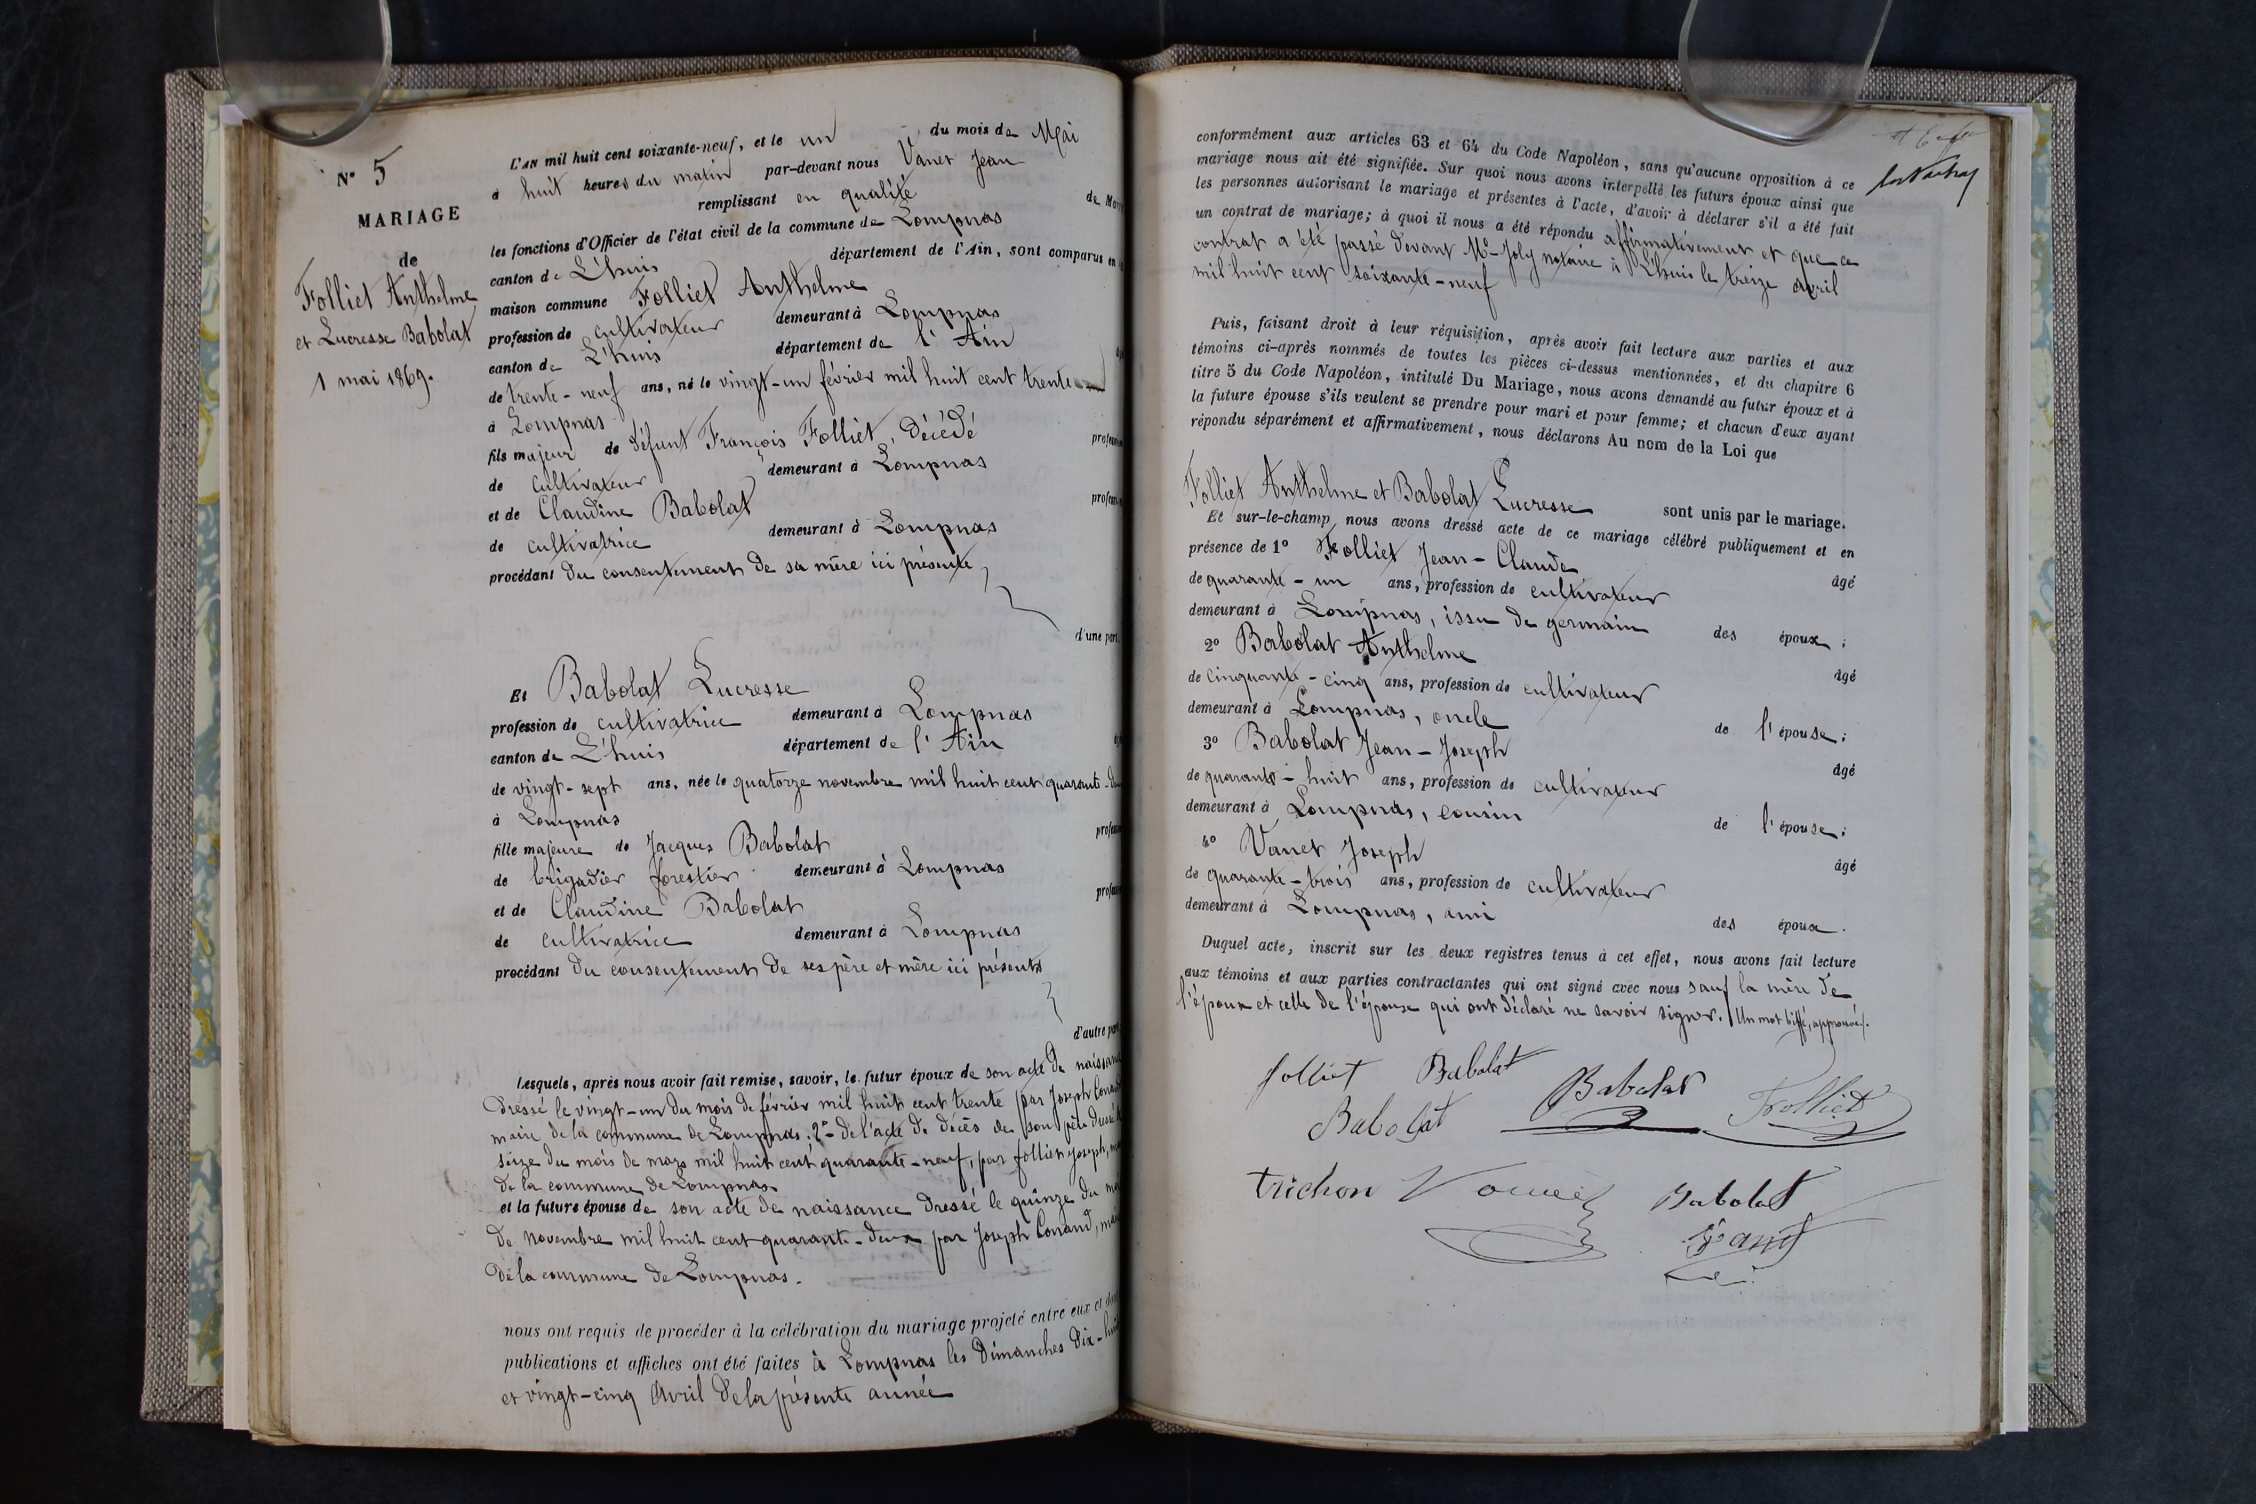 N° 5
MARIAGE
de
Folliet Anthelme
et Lucresse Babolat
1 mai 1869.
L'AN mil huit cent soixante-neuf, et le un du mois de Mai
à huit heures du matin par-devant nous Vanet Jean
remplissant en qualité de
les fonctions d'Officier de l'état civil de la commune de Lompnas
canton de L'huis département de l'Ain, sont comparus en
maison commune Folliet Anthelme
profession de cultivateur demeurant à Lompnas
canton de L'huis département de l'Ain
de trente-neuf ans, né le vingt-un février mil huit cent trente
à Lompnas
fils majeur de défunt François Folliet, décédé
de cultivateur demeurant à Lompnas
et de Claudine Babolat
de cultivatrice demeurant à Lompnas
procédant du consentement de sa mère ici présente
d'une part.
Et Babolat Lucresse
profession de cultivatrice demeurant à Lompnas
canton de L'huis département de l'Ain
de vingt-sept ans, née le quatorze novembre mil huit cent quarante-
à Lompnas
fille majeure de Jacques Babolat
de brigadier forestier demeurant à Lompnas
et de Claudine Babolat
de cultivatrice demeurant à Lompnas
procédant du consentement de ses père et mère ici présents
d'autre part
Lesquels, après nous avoir fait remise, savoir, le futur époux de son acte de
dressé le vingt-un du mois de février mil huit cent trente par Joseph
maire de la commune de Lompnas. 2° de l'acte de décès de son père
seize du mois de mars mil huit cent quarante-neuf, par follier Joseph,
de la commune de Lompnas
et la future épouse de son acte de naissance dressé le quinze du
de novembre mil huit cent quarante-deux par Joseph Conand,
de la commune de Lompnas.
nous ont requis de procéder à la célébration du mariage projeté entre eux et
publications et affiches ont été faites à Lompnas les Dimanches dix-
et vingt-cinq Avril de la présente année
conformément aux articles 63 et 64 du Code Napoléon, sans qu'aucune opposition à ce
mariage nous ait été signifiée. Sur quoi nous avons interpellé les futurs époux ainsi que
les personnes autorisant le mariage et présentes à l'acte, d'avoir à déclarer s'il a été fait
un contrat de mariage; à quoi il nous a été répondu affirmativement et que ce
contrat a été passé devant Me Joly notaire à L'huis le treize avril
mil huit cent soixante-neuf
Puis, faisant droit à leur réquisition, après avoir fait lecture aux parties et aux
témoins ci-après nommés de toutes les pièces ci-dessus mentionnées, et du chapitre 6
titre 5 du Code Napoléon, intitulé Du Mariage, nous avons demandé au futur époux et à
la future épouse s'ils veulent se prendre pour mari et pour femme; et chacun d'eux ayant
répondu séparément et affirmativement, nous déclarons Au nom de la Loi que
Folliet Anthelme et Babolat Lucresse sont unis par le mariage.
Et sur-le-champ nous avons dressé acte de ce mariage célébré publiquement et en
présence de 1° Folliet Jean-Claude âgé
de quarante-un ans, profession de cultivateur
demeurant à Lompnas, issu de germain des époux;
2° Babolat Anthelme âgé
de cinquante-cinq ans, profession de cultivateur
demeurant à Lompnas, oncle de l'épouse;
3° Babolat Jean-Joseph âgé
de quarante-huit ans, profession de cultivateur
demeurant à Lompnas, cousin de l'épouse;
4° Vanet Joseph âgé
de quarante-trois ans, profession de cultivateur
demeurant à Lompnas, ami des époux.
Duquel acte, inscrit sur les deux registres tenus à cet effet, nous avons fait lecture
aux témoins et aux parties contractantes qui ont signé avec nous sauf la mère de
l'époux et celle de l'épouse qui ont déclaré ne savoir signer. Un mot biffé, approuvé.
folliet Babolat
Babolat Babolat Folliet
trichon Babolat